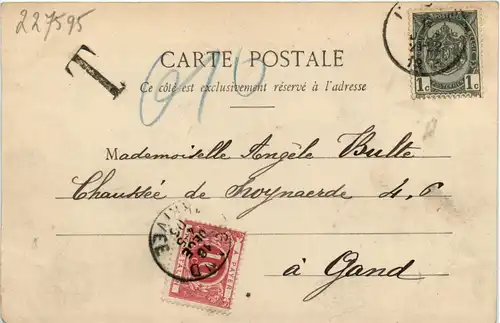 227595
T
010
CARTE POSTALE
Ce côté est exclusivement réservé à l'adresse
1c 1c
Mademoiselle Angèle Bulté
Chaussée de Swynaerde 4,6
à Gand